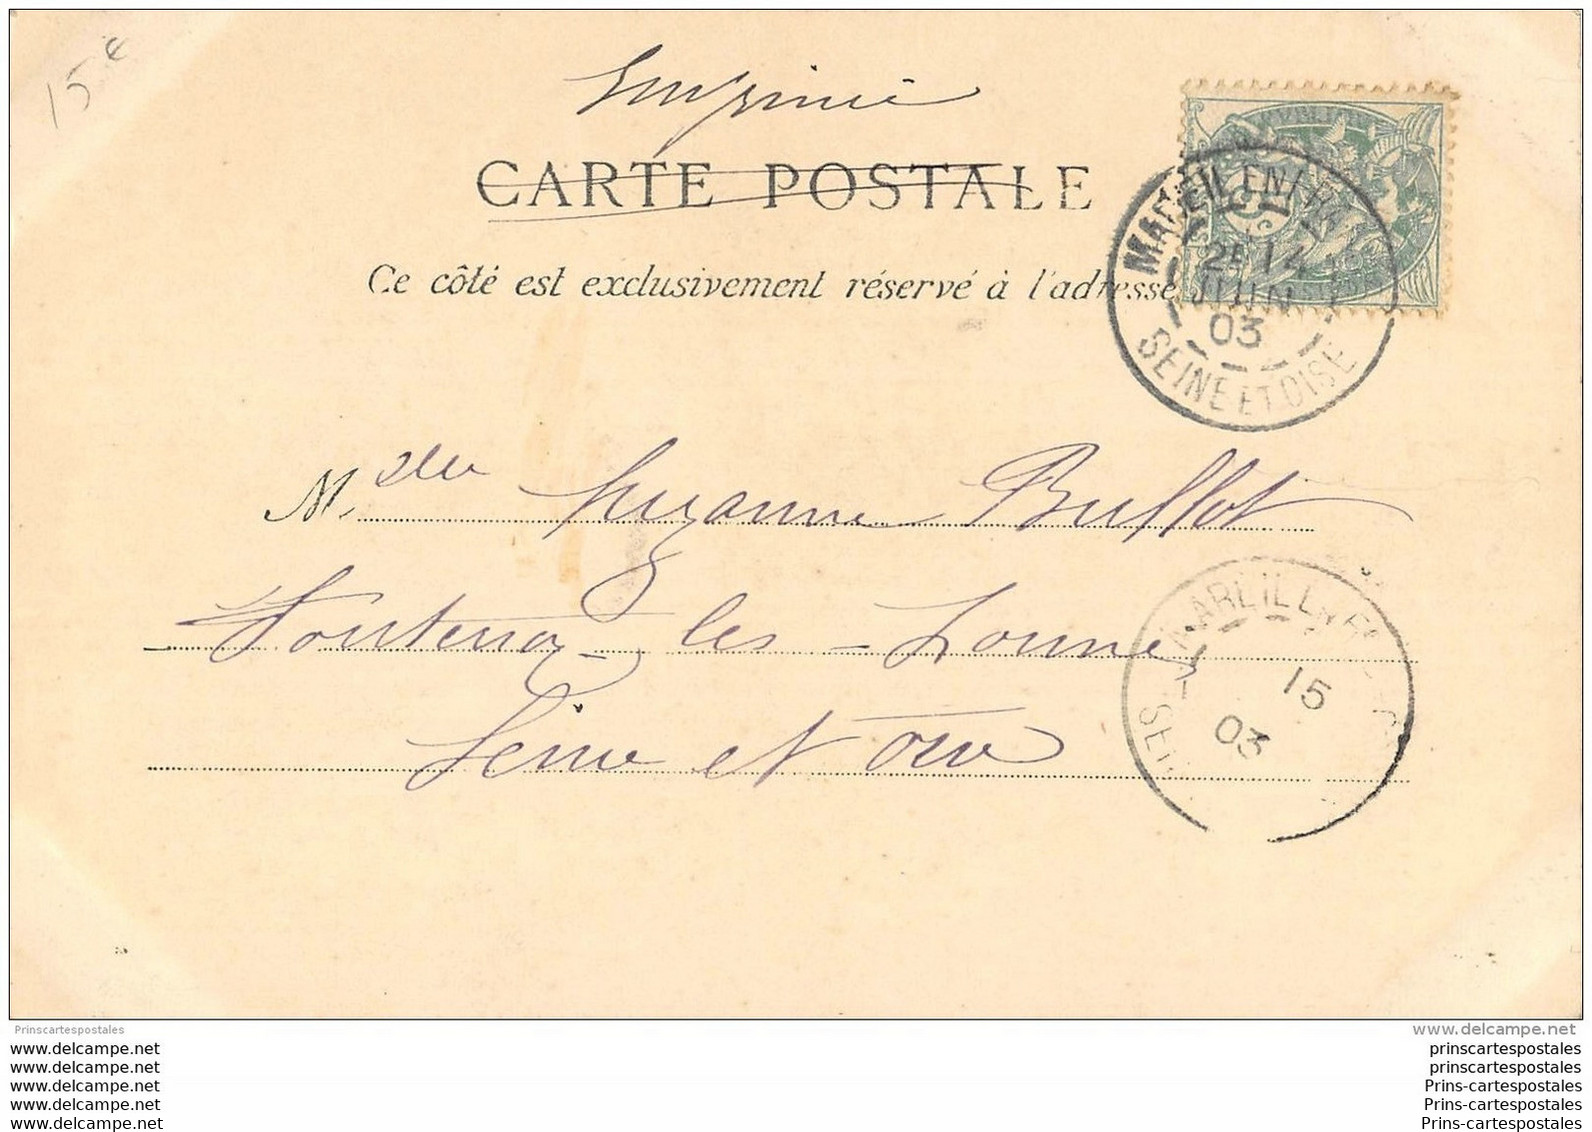 15 €
Imprimé
CARTE POSTALE
Ce côté est exclusivement réservé à l'adresse
MAREIL EN FRANCE
2E 14
JUIN
03
SEINE ET OISE
M. elle Suzanne Bullot
Fontenay-les-Louvres
Seine et Oise
MAREIL EN FRANCE
15
03
Prinscartespostales
www.delcampe.net
www.delcampe.net
www.delcampe.net
www.delcampe.net
www.delcampe.net
www.delcampe.net
prinscartespostales
prinscartespostales
Prins-cartespostales
Prins-cartespostales
Prins-cartespostales